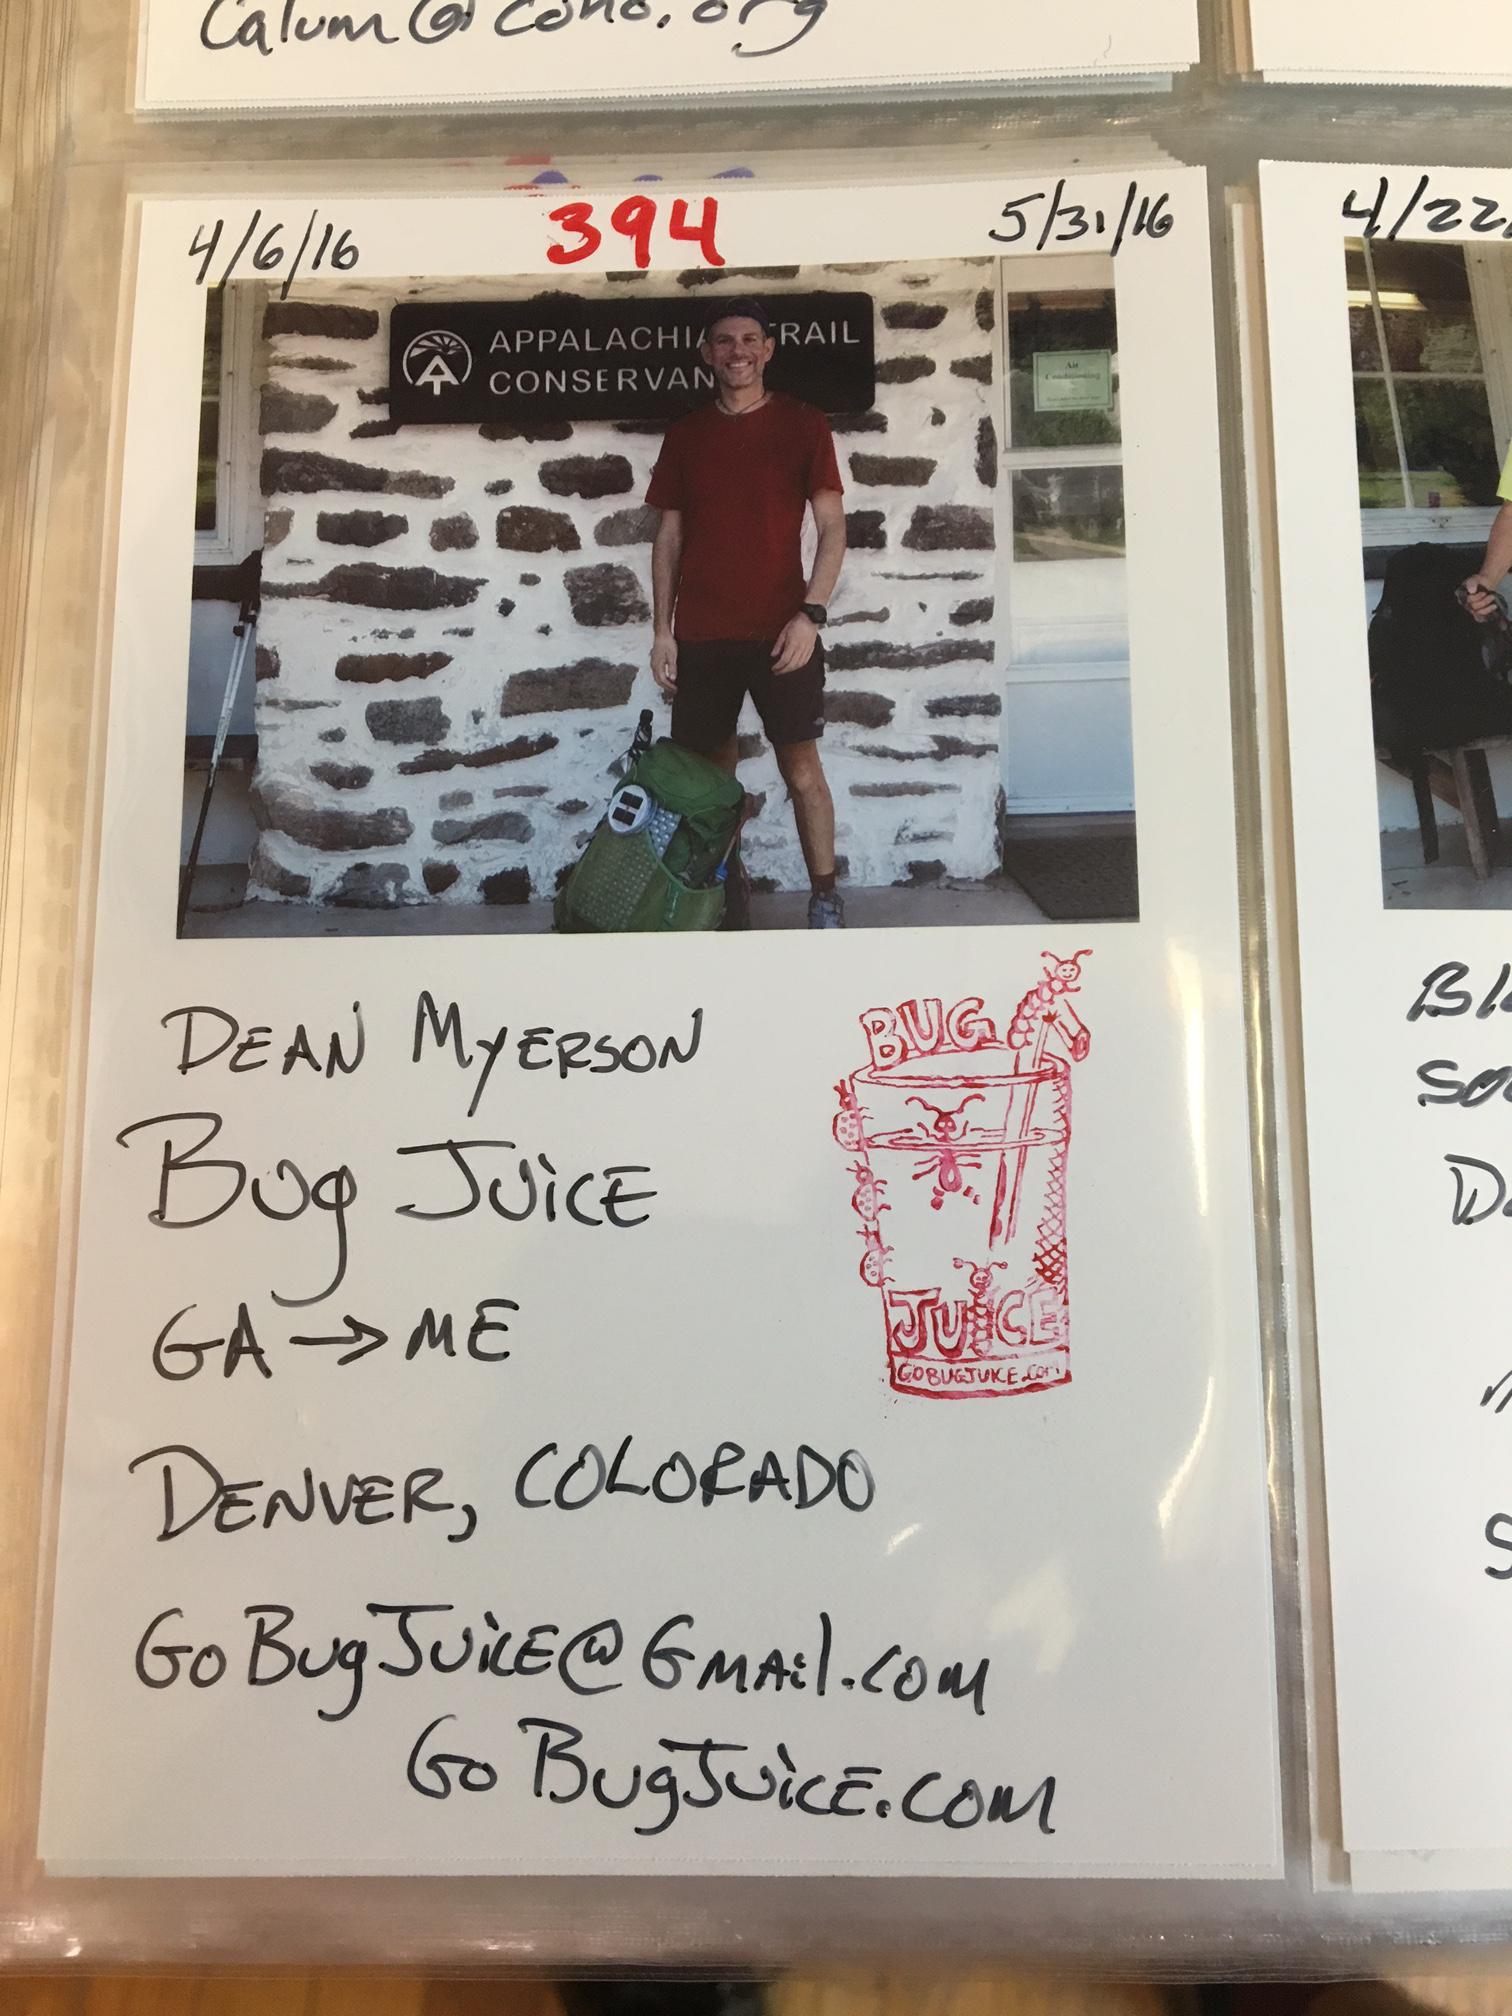 Calum@coho.org
4/6/16 394 5/31/16
4/22
APPALACHI TRAIL
CONSERVAN
Air
Conditioning
DEAN MYERSON
BUG JUICE
GA → ME
DENVER, COLORADO
GOBUGJUICE@GMAIL.COM
GOBUGJUICE.COM
BUG
JUICE
GOBUGJUICE.com